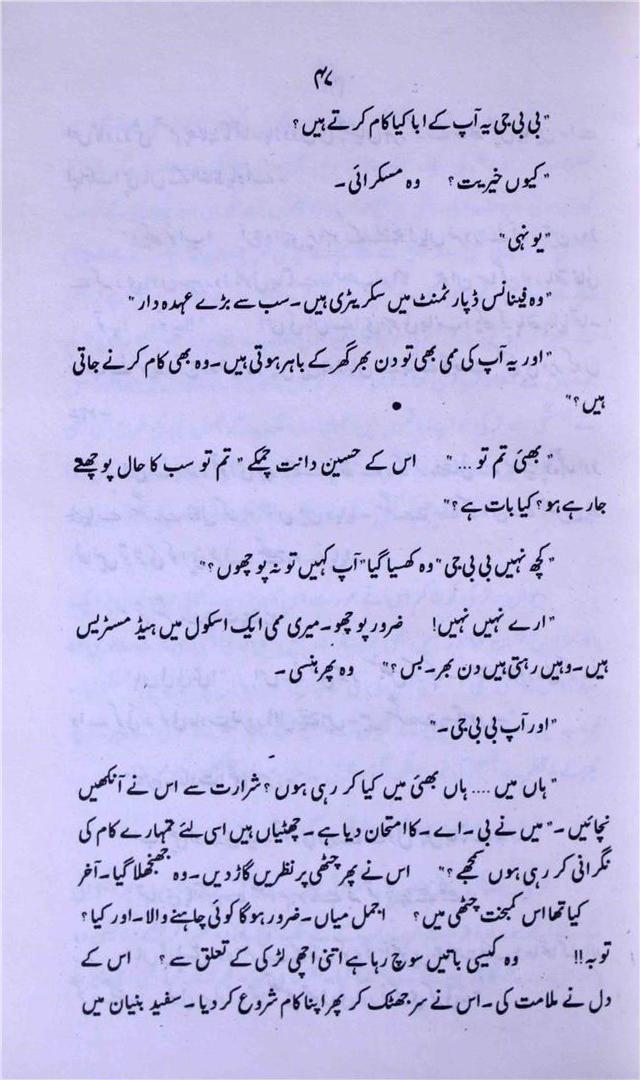 ۴۷
"بی بی جی یہ آپ کے ابا کیا کام کرتے ہیں؟
"کیوں خیریت؟ وہ مسکرائی۔
"یونہی"
"وہ فینانس ڈپارٹمنٹ میں سکریٹری ہیں۔ سب سے بڑے عہدہ دار"
"اور یہ آپ کی ممی بھی تو دن بھر گھر کے باہر ہوتی ہیں۔ وہ بھی کام کرنے جاتی
ہیں؟"
"بھئی تم تو ..." اس کے حسین دانت چمکے "تم تو سب کا حال پوچھتے
جا رہے ہو؟ کیا بات ہے؟"
"کچھ نہیں بی بی جی" وہ کھسیا گیا "آپ کہیں تو نہ پوچھوں؟"
"ارے نہیں نہیں! ضرور پوچھو۔ میری ممی ایک اسکول میں ہیڈ مسٹریس
ہیں۔ وہیں رہتی ہیں دن بھر۔ بس؟" وہ پھر ہنسی۔
"اور آپ بی بی جی۔"
"ہاں میں .... ہاں بھئی میں کیا کر رہی ہوں؟ شرارت سے اس نے آنکھیں
نچائیں۔" میں نے بی۔اے۔ کا امتحان دیا ہے۔ چھٹیاں ہیں اسی لئے تمہارے کام کی
نگرانی کر رہی ہوں سمجھے؟" اس نے پھر چٹھی پر نظریں گاڑ دیں۔ وہ جھنجھلا گیا۔ آخر
کیا تھا اس کمبخت چٹھی میں؟ اجمل میاں۔ ضرور ہوگا کوئی چاہنے والا۔ اور کیا؟
توبہ!! وہ کیسی باتیں سوچ رہا ہے اتنی اچھی لڑکی کے تعلق سے؟ اس کے
دل نے ملامت کی۔ اس نے سر جھٹک کر پھر اپنا کام شروع کر دیا۔ سفید بنیان میں